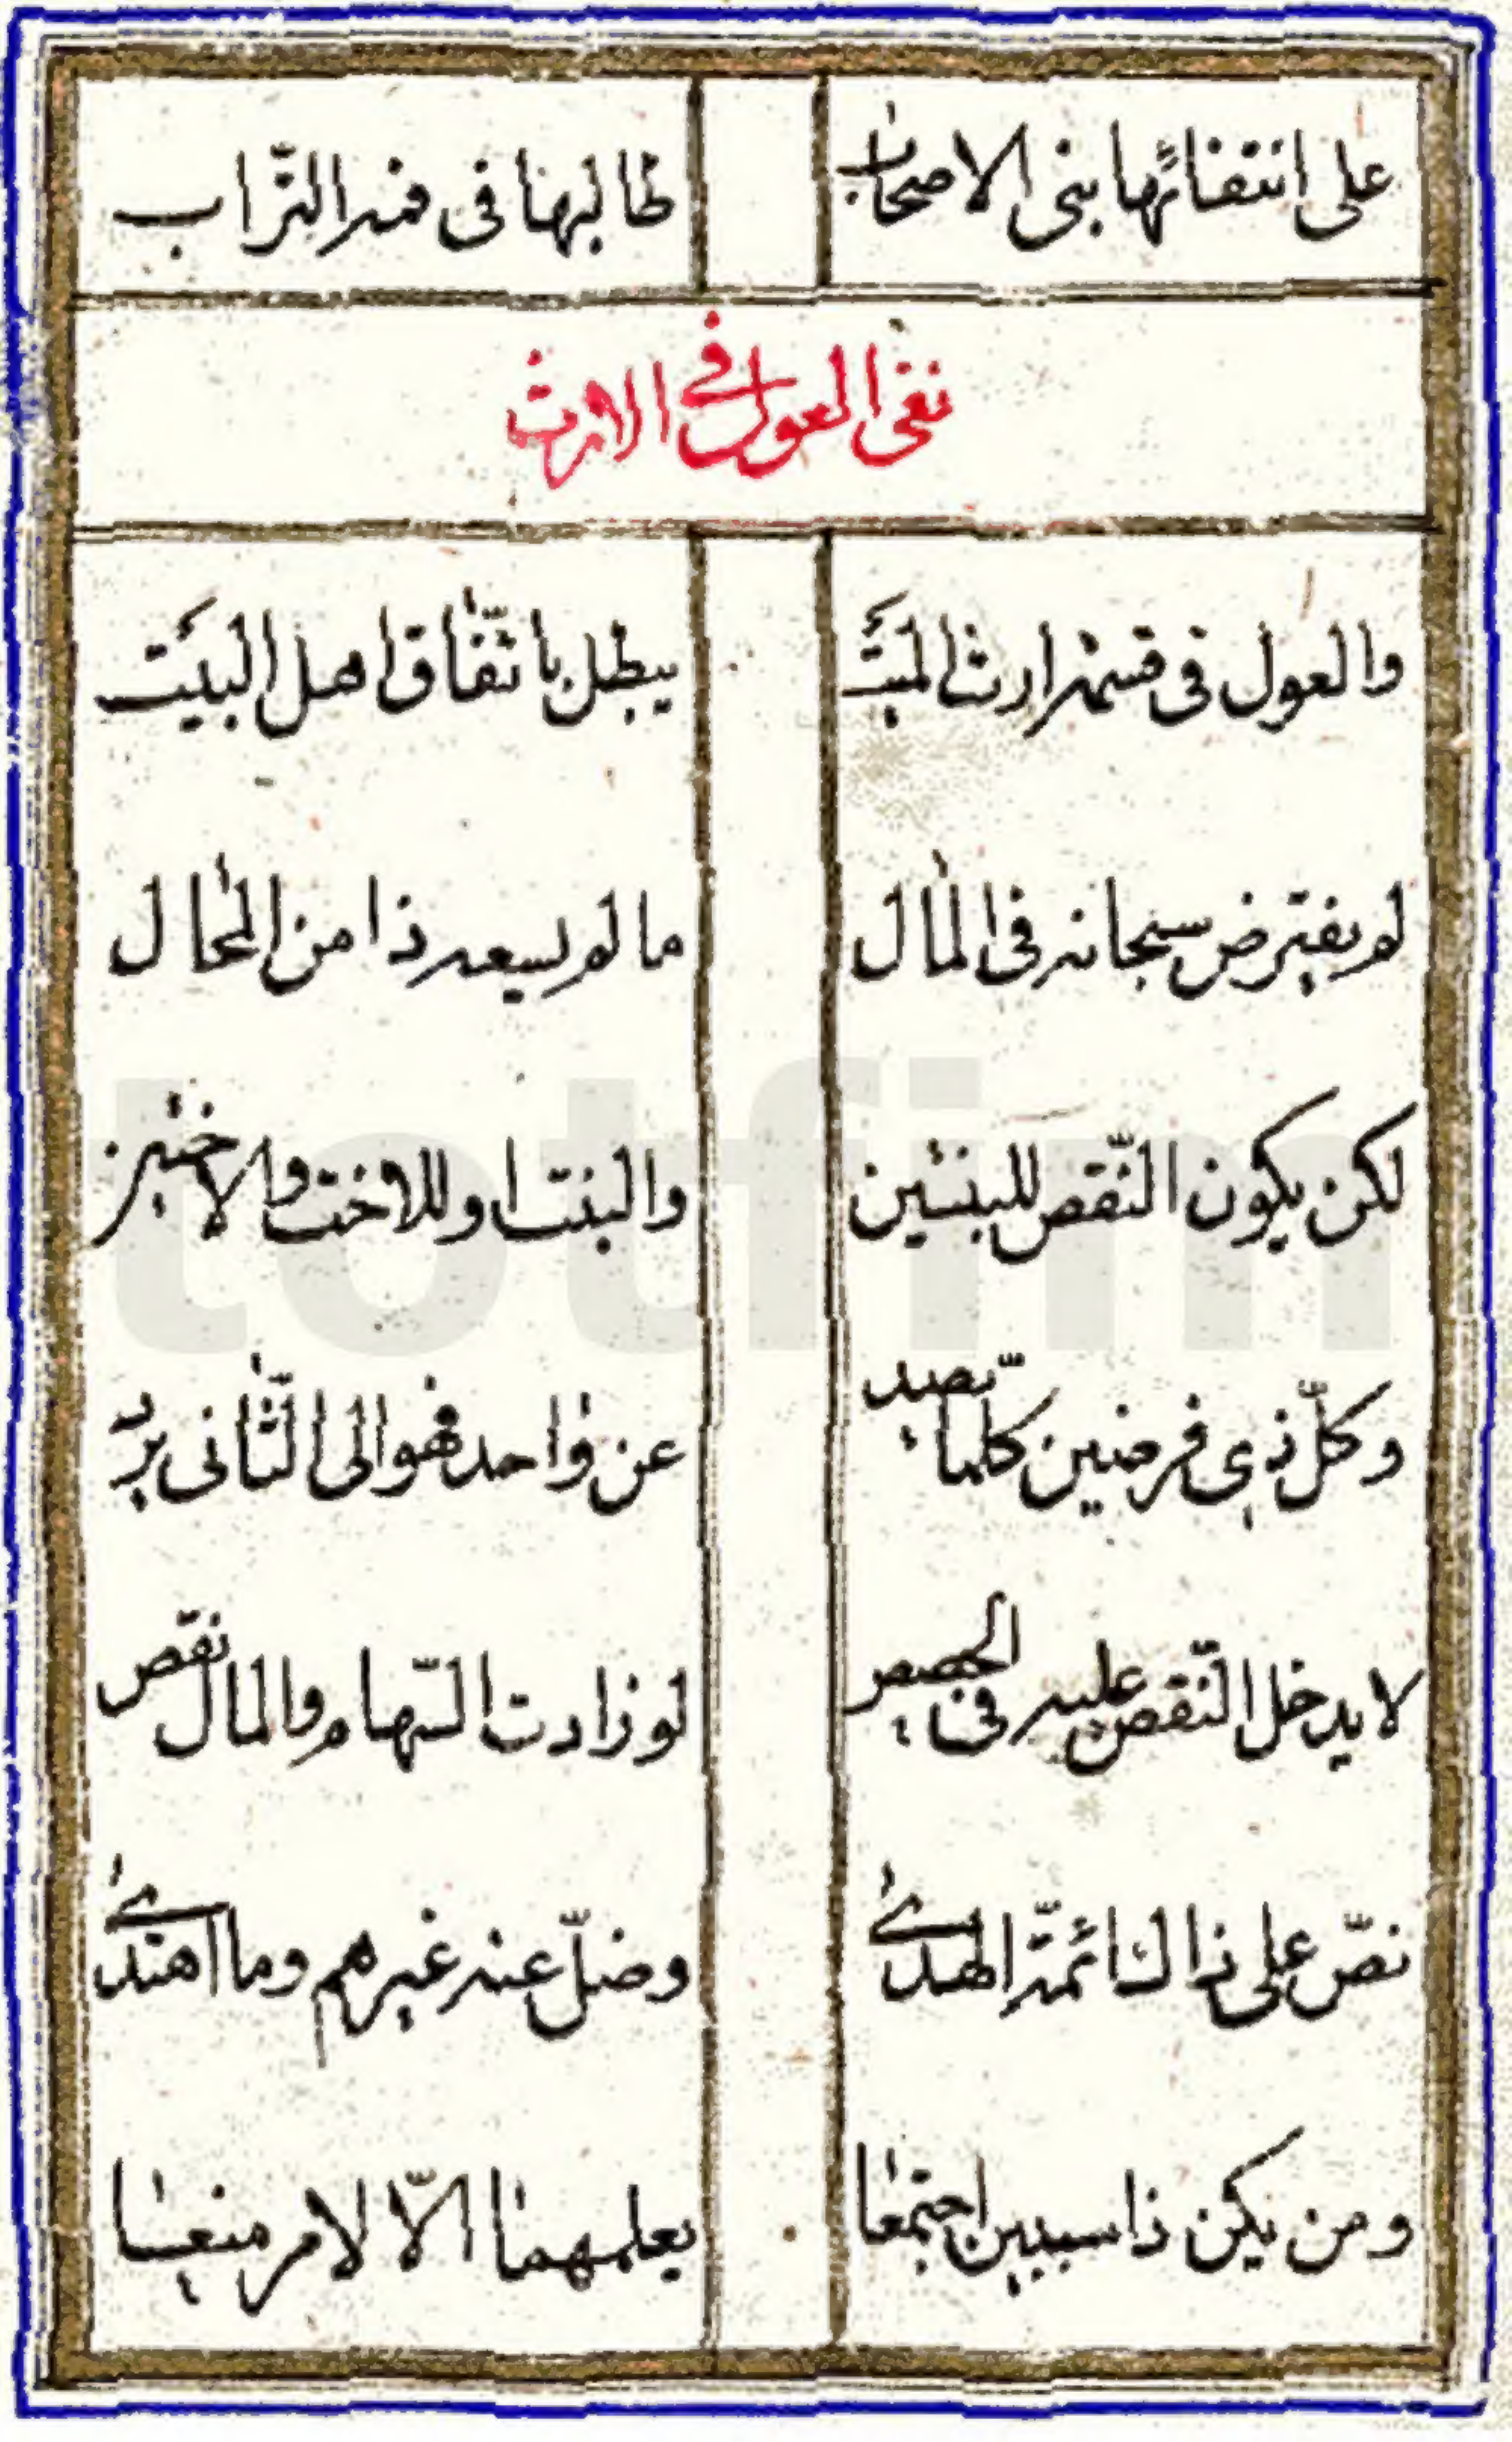 على انتفائها بنى الاصحاب طالبها فى فمه التّراب
نفى العول في الارث
والعول فى قسمة ارث الميّت يبطل باتّفاق اهل البيت
لم يفترض سبحانه فى المال ما لم يسعه ذا من المحال
لكن يكون النّقص للبنتين والبنت او للاخت والاختين
وكلّ ذى فرضين كلما يصد عن واحد فهو الى الثّانى يرد
لا يدخل النّقص عليه فى الحصص لو زادت السّهام والمال نقص
نصّ على ذاك ائمّة الهدى وضلّ عنه غيرهم وما اهتدى
ومن يكن ذا سببين اجتمعا يعلمهما الّا لامر منعا
totfim